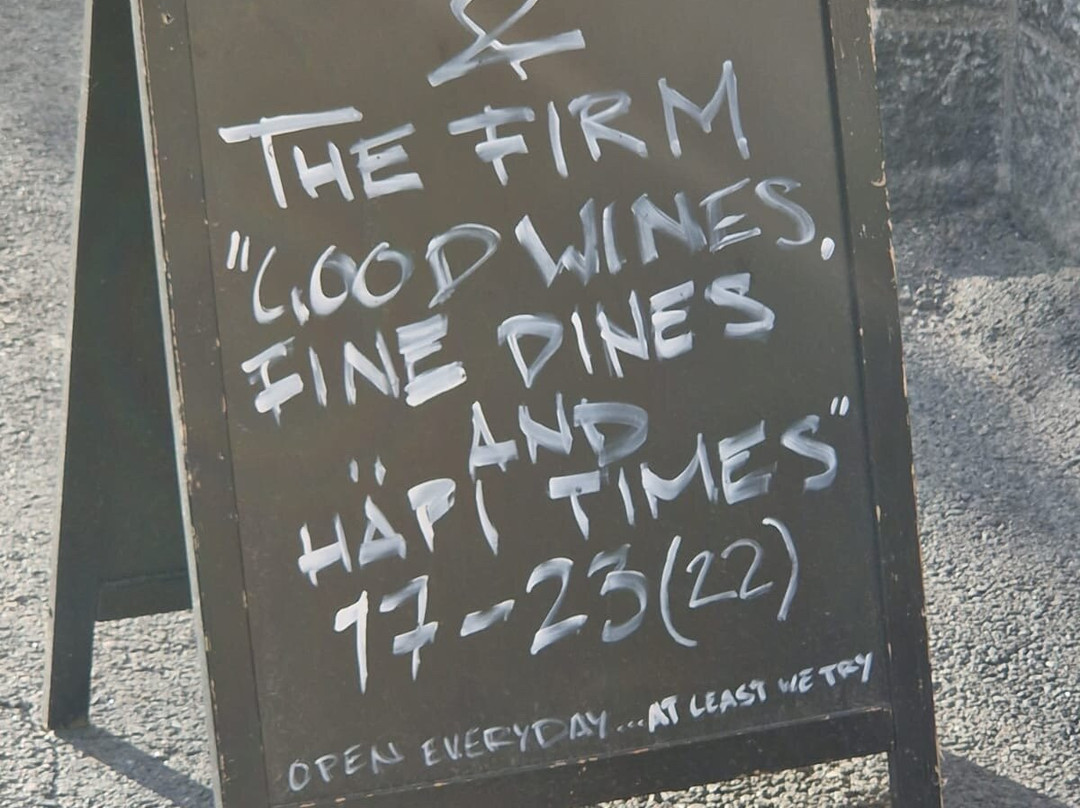 &
THE FIRM
"GOOD WINES.
FINE DINES
AND
HÄPI TIMES"
17-23(22)
OPEN EVERYDAY...AT LEAST WE TRY